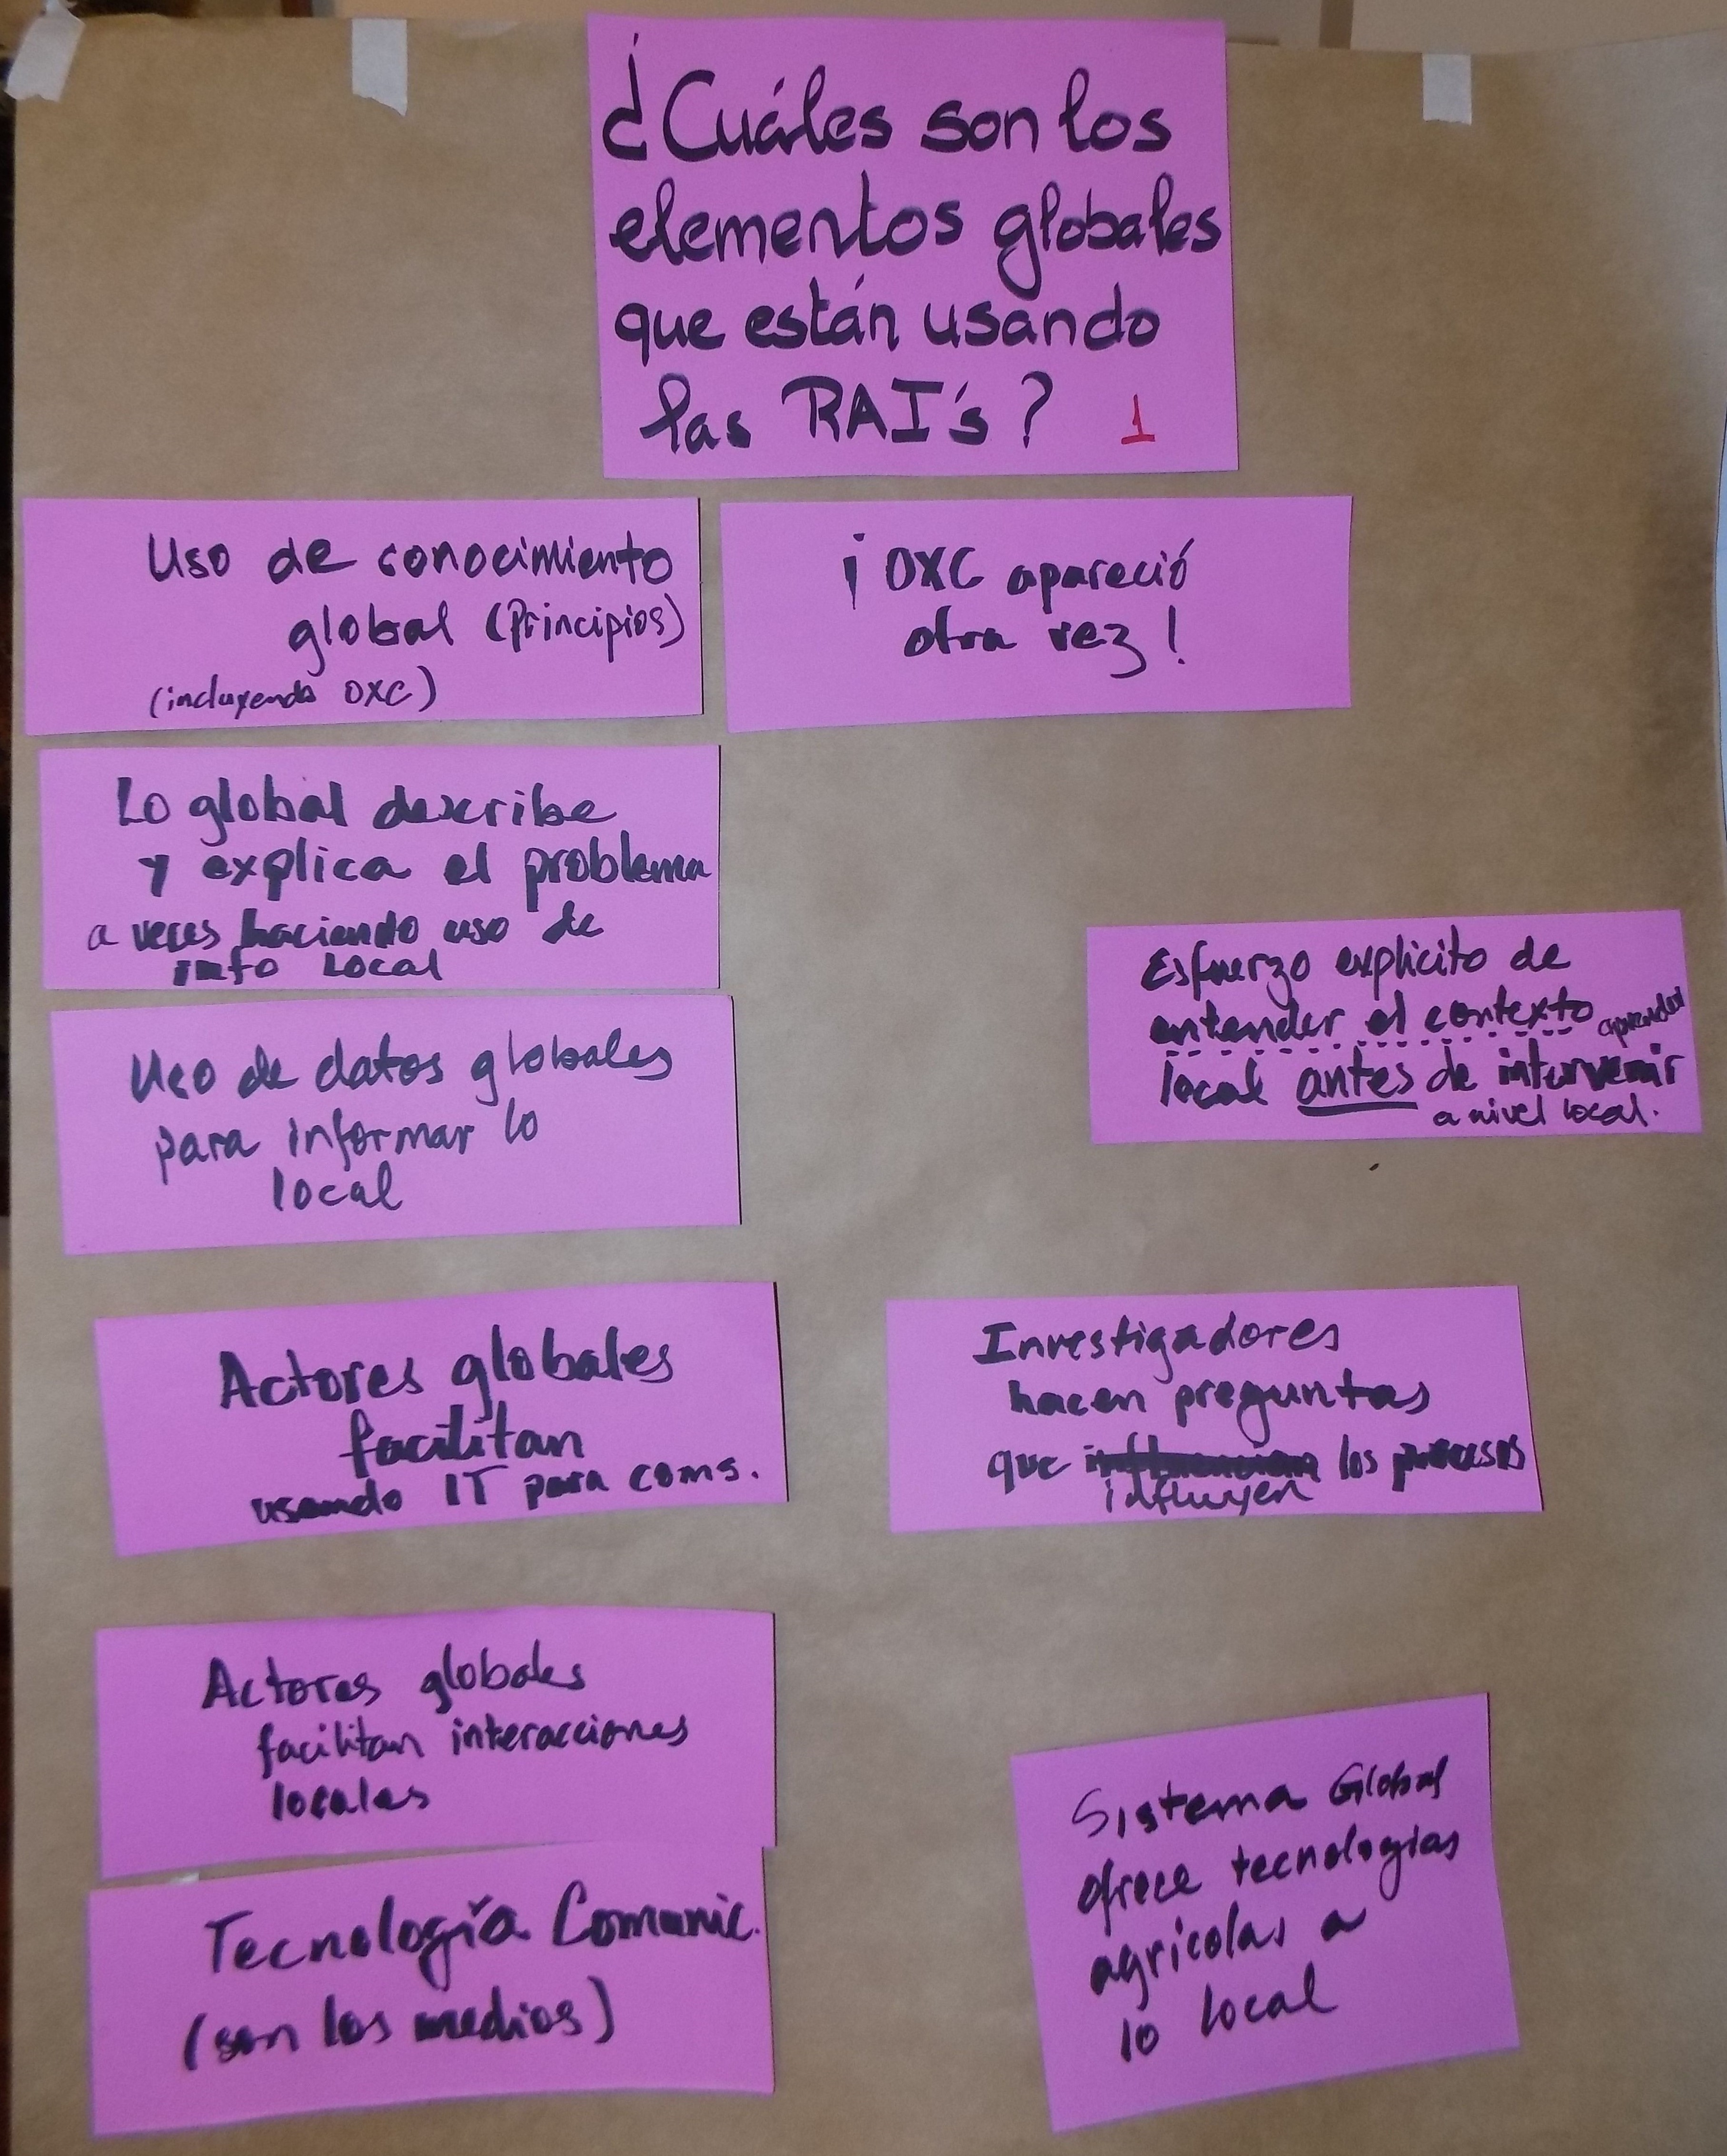 ¿Cuáles son los
elementos globales
que están usando
las RAI's? 1
Uso de conocimiento
global (Principios)
(incluyendo OXC)
¡OXC apareció
otra vez!
Lo global describe
y explica el problema
a veces haciendo uso de
info Local
Uso de datos globales
para informar lo
local
Esfuerzo explicito de
entender el contexto aprender
local antes de intervenir
a nivel local.
Actores globales
facilitan
usando IT para coms.
Investigadores
hacen preguntas
que los procesos
influyen
Actores globales
facilitan interacciones
locales
Tecnología Comunic.
(son los medios)
Sistema Global
ofrece tecnologias
agricolas a
lo local